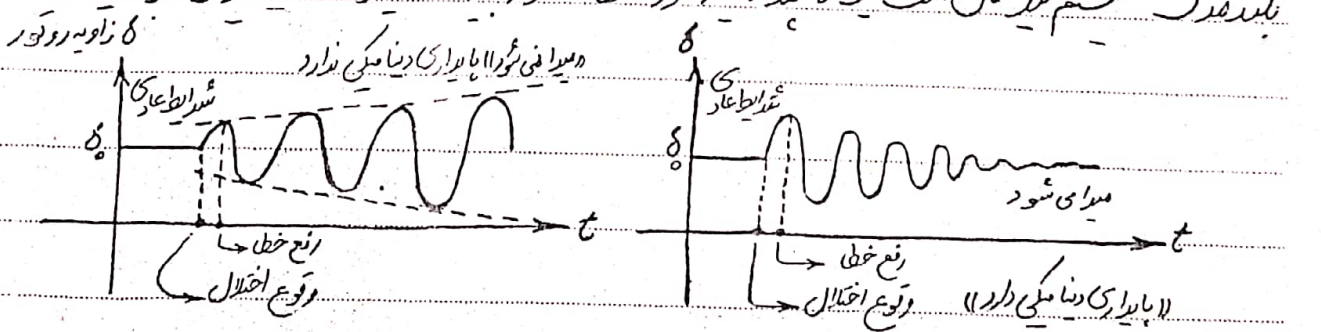 δ زاویه روتور
«میرا نمی‌شود» پایداری دینامیکی ندارد
شرایط عادی
δ₀
t
رفع خطا
وقوع اختلال
δ
شرایط عادی
δ₀
میرا می‌شود
t
رفع خطا
وقوع اختلال
«پایداری دینامیکی دارد»